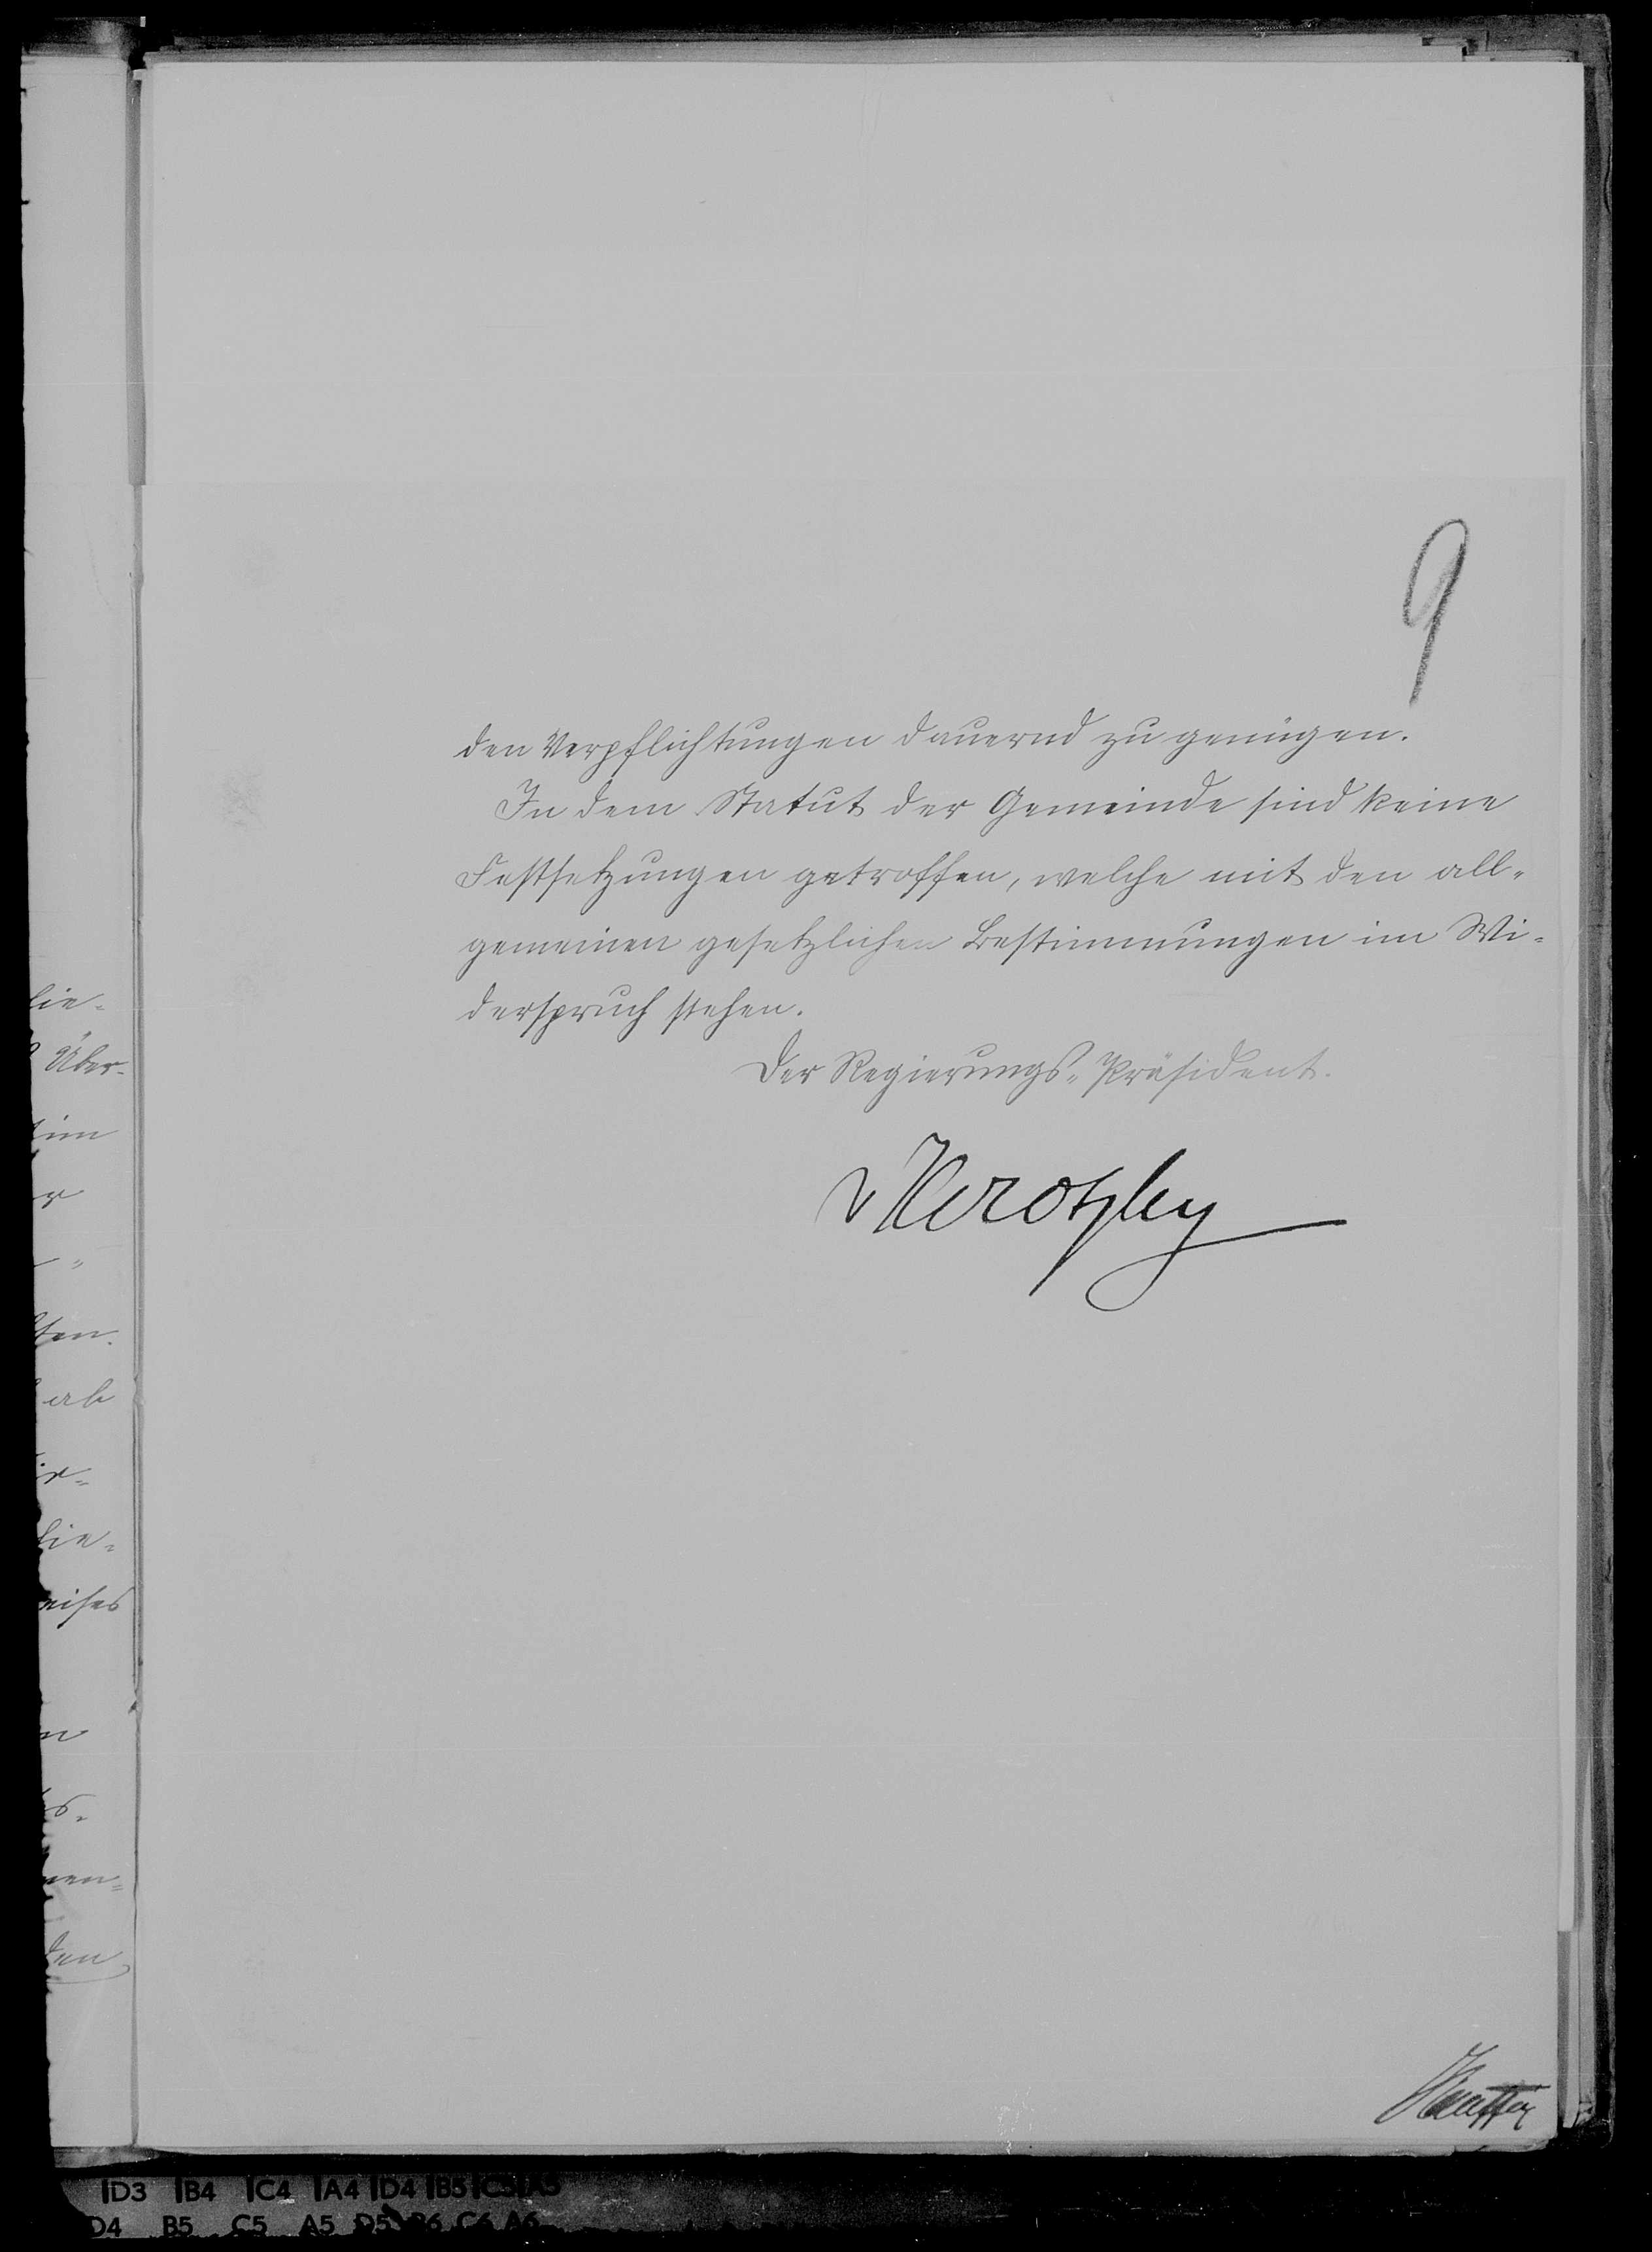 9
den Verpflichtungen dauernd zu genügen.
In dem Statut der Gemeinde sind keine
Festsetzungen getroffen, welche mit den all-
gemeinen gesetzlichen Bestimmungen im Wi-
derspruch stehen.
Der Regierungs-Präsident.
lie-
Über-
im
ten.
ab
lie-
eises
nen-
den
D3 B4 C4 A4 D4 B5 C5 A5
D4 B5 C5 A5 D5 B6 C6 A6